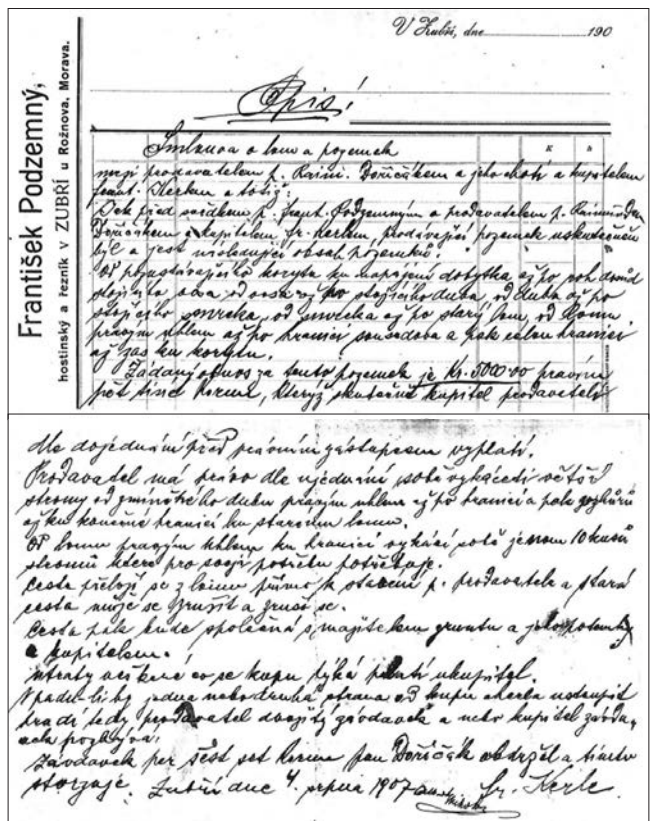 František Podzemný,
hostinský a řezník v ZUBŘÍ u Rožnova, Morava.
V Zubří, dne 190
Opis!
Smlouva o lom a pozemek
K h
mezi prodavatelem p. Raim. Dořičákem a jeho chotí a kupitelem
frant. Kerlem a totiž:
Dek před svědkem p. frant. Podzemným a prodavatelem p. Raimundem
Dořičákem a kupitelem fr. Kerlem, prodávající pozemek uskutečněn
byl a jest následující obsah pozemků:
Od pozustávajícího koryta ku napájení dobytka až po
stojícího od až po stojícího duba, od duba až po
stojícího smrčka, od smrčka až po starý lom, od lomu
pravým uhlem až po hranici sousedova a pak célou hranicí
až zas ku korytu.
Žádaný obnos za tento pozemek je Kr. 5000·00 pravím
pět tisíc korun, kterýž skutečně kupitel prodavateli
dle dojednání před právním zástupcem vyplatí.
Prodavatel má právo dle ujednání sobě vykáceti větší
stromy od zmíněného dubu pravým uhlem až po hranici a pak
až ku konečné hranici ku starému lomu.
Od lomu pravým uhlem ku hranici vykácí sobě jenom 10 kusů
stromů které pro svoji potřebu potřebuje.
Cesta přeloží se z lomu přímo k stavení p. prodavatele a stará
cesta může se zrušit a zruší se.
Cesta pak bude společná s majitelem gruntu a jeho potomky
a kupitelem.
Utraty veškeré co se kupu týká platí kupitel.
V padu-li by jedna nebo druhá strana od kupu chtěla ustoupit
hradí tedy prodavatel dvojitý závdavek a nebo kupitel závda-
vek pozbývá.
Závdavek per šest set korun pan Dořičák obdržel a tímto
stvrzuje. Zubří dne 4. srpna 1907 Fr. Kerle